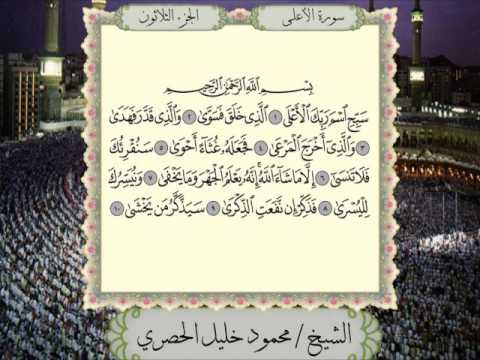 سورة الأعلى
الجزء الثلاثون
بِسْمِ اللَّهِ الرَّحْمَٰنِ الرَّحِيمِ
سَبِّحِ اسْمَ رَبِّكَ الْأَعْلَى ١ الَّذِي خَلَقَ فَسَوَّىٰ ٢ وَالَّذِي قَدَّرَ فَهَدَىٰ
٣ وَالَّذِي أَخْرَجَ الْمَرْعَىٰ ٤ فَجَعَلَهُ غُثَاءً أَحْوَىٰ ٥ سَنُقْرِئُكَ
فَلَا تَنسَىٰ ٦ إِلَّا مَا شَاءَ اللَّهُ إِنَّهُ يَعْلَمُ الْجَهْرَ وَمَا يَخْفَىٰ ٧ وَنُيَسِّرُكَ
لِلْيُسْرَىٰ ٨ فَذَكِّرْ إِن نَّفَعَتِ الذِّكْرَىٰ ٩ سَيَذَّكَّرُ مَن يَخْشَىٰ ١٠
الشيخ / محمود خليل الحصري